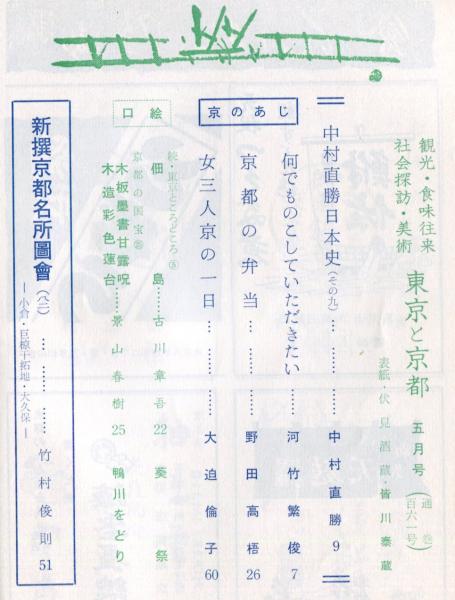 観光・食味往来
社会探訪・美術
東京と京都 五月号(通巻百六一号)
表紙・伏見酒蔵・皆川泰蔵
中村直勝日本史(その九)…………中村直勝 9
京のあじ
何でものこしていただきたい……河竹繁俊 7
京都の弁当…………野田高梧 26
女三人京の一日…………大迫倫子 60
口絵
続・東京ところどころ⑤
佃島……古川章吾 22 葵祭
京都の国宝⑳
木板墨書甘露呪
木造彩色蓮台……景山春樹 25 鴨川をどり
新撰京都名所圖會(八三)…………竹村俊則 51
―小倉・巨椋干拓地・大久保―